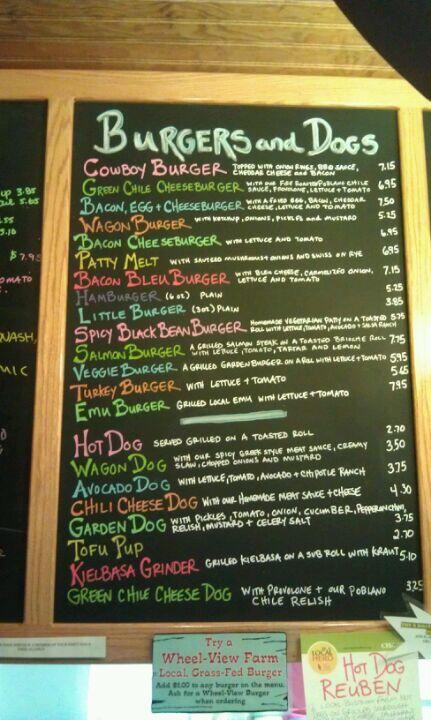 BURGERS and DOGS
COWBOY BURGER TOPPED WITH ONION RINGS, BBQ SAUCE, CHEDDAR CHEESE and BACON 7.15
GREEN CHILE CHEESEBURGER WITH OUR FIRE ROASTED POBLANO CHILE SAUCE, PROVOLONE, LETTUCE + TOMATO 6.95
BACON, EGG + CHEESEBURGER WITH A FRIED EGG, BACON, CHEDDAR CHEESE, LETTUCE AND TOMATO 7.50
WAGON BURGER WITH KETCHUP, ONIONS, PICKLES and MUSTARD 5.25
BACON CHEESEBURGER WITH LETTUCE AND TOMATO 6.95
PATTY MELT WITH SAUTEED MUSHROOMS + ONIONS AND SWISS ON RYE 6.95
BACON BLEU BURGER WITH BLEU CHEESE, CARMELIZED ONION, LETTUCE AND TOMATO 7.15
HAMBURGER (6 oz) PLAIN 5.25
LITTLE BURGER (3oz) PLAIN 3.85
SPICY BLACK BEAN BURGER HOMEMADE VEGETARIAN PATTY ON A TOASTED ROLL WITH LETTUCE, TOMATO, AVOCADO + SALSA RANCH 5.75
SALMON BURGER A GRILLED SALMON STEAK ON A TOASTED BRIOCHE ROLL WITH LETTUCE, TOMATO, TARTAR AND LEMON 7.75
VEGGIE BURGER A GRILLED GARDENBURGER ON A ROLL WITH LETTUCE + TOMATO 5.95
TURKEY BURGER WITH LETTUCE + TOMATO 5.65
EMU BURGER GRILLED LOCAL EMU WITH LETTUCE + TOMATO 7.95
HOT DOG SERVED GRILLED ON A TOASTED ROLL 2.70
WAGON DOG WITH OUR SPICY GREEK STYLE MEAT SAUCE, CREAMY SLAW, CHOPPED ONIONS AND MUSTARD 3.50
AVOCADO DOG WITH LETTUCE, TOMATO, AVOCADO + CHIPOTLE RANCH 3.75
CHILI CHEESE DOG WITH OUR HOMEMADE MEAT SAUCE + CHEESE 4.30
GARDEN DOG WITH PICKLES, TOMATO, ONION, CUCUMBER, PEPPERONCINI, RELISH, MUSTARD + CELERY SALT 3.75
TOFU PUP 2.70
KIELBASA GRINDER GRILLED KIELBASA ON A SUB ROLL WITH KRAUT 5.10
GREEN CHILE CHEESE DOG WITH PROVOLONE + OUR POBLANO CHILE RELISH 3.25
up 3.85
5.65
.55
5.10
$7.95
OMATO
NASH,
MIC
Try a
Wheel-View Farm
Local, Grass-Fed Burger
Add $1.00 to any burger on the menu.
Ask for a Wheel-View Burger
when ordering
LOCAL
HERO
HOT DOG
REUBEN